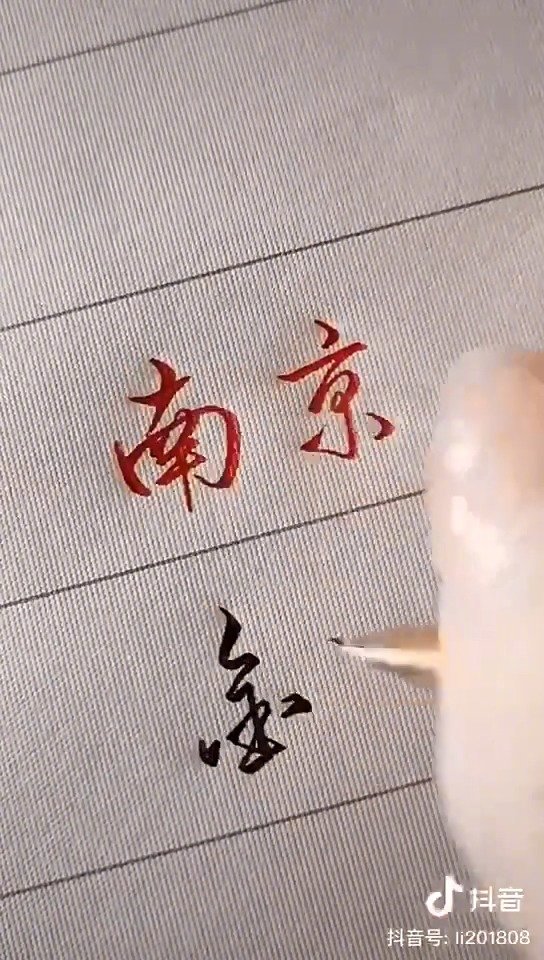 南京
抖音
抖音号: li201808